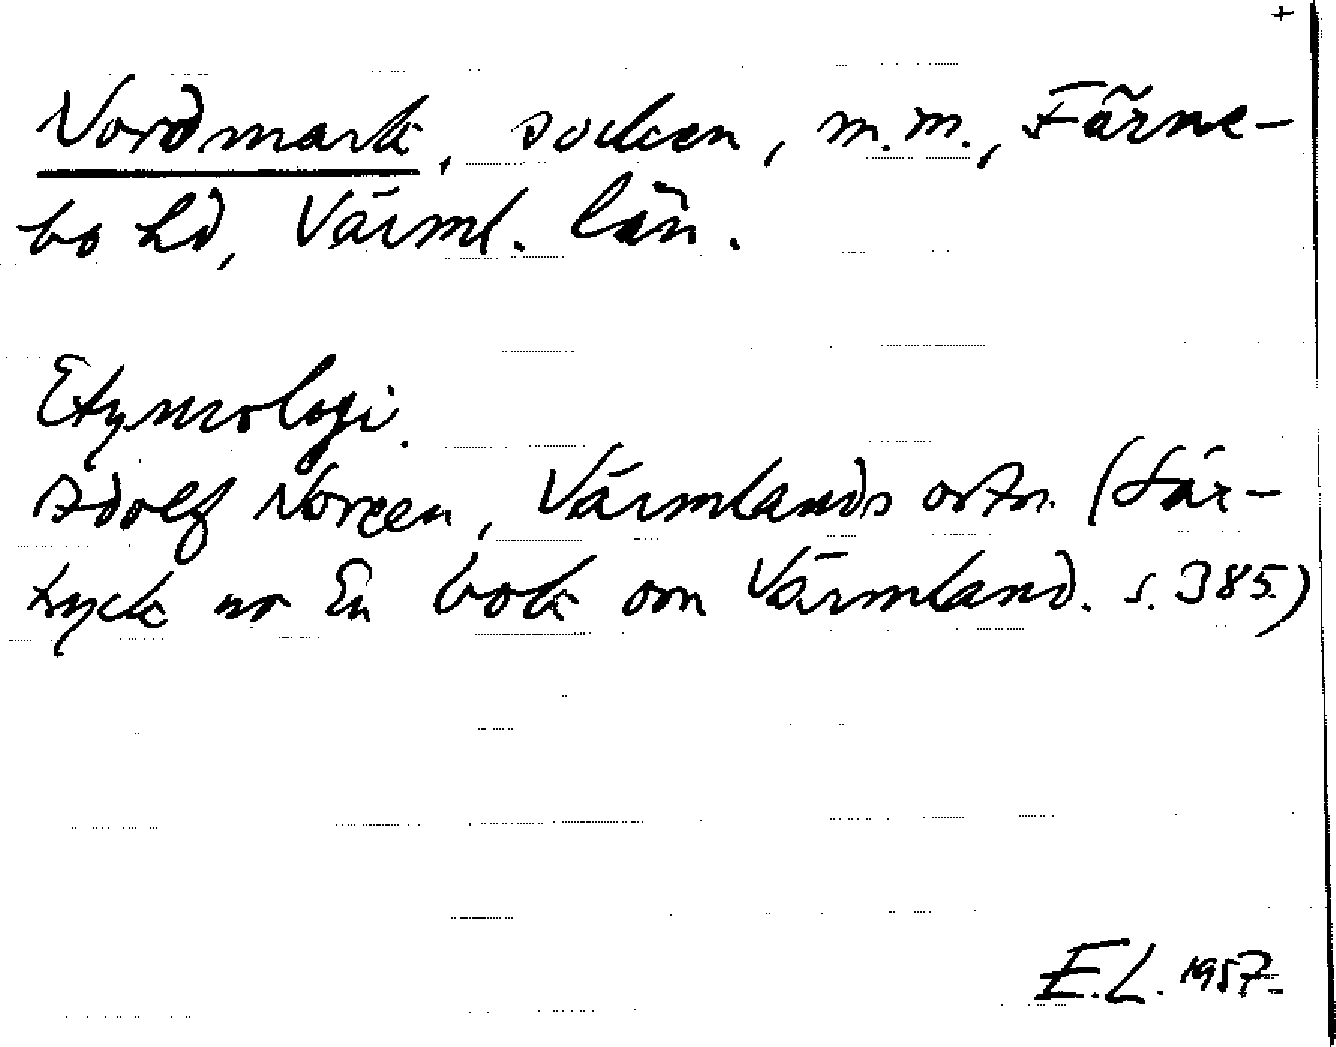 +
Nordmark, socken, m.m., Färne-
bo hd, Värml. län.
Etymologi.
Adolf Noreen, Värmlands ortn. (Sär-
tryck ur En bok om Värmland. s. 385)
E.L. 1957